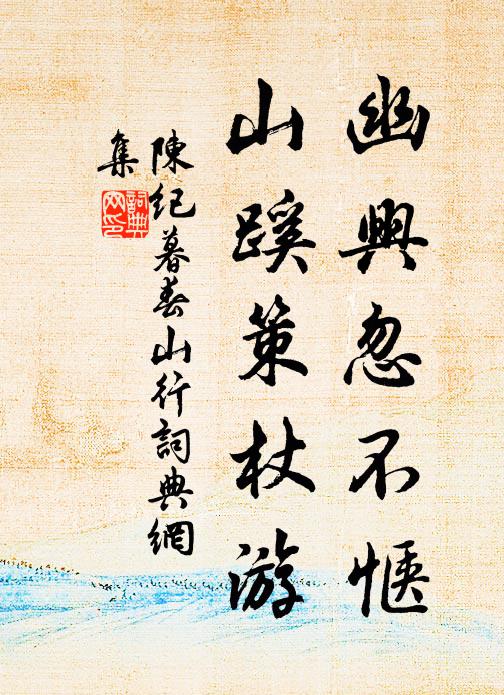 幽興忽不愜
山蹊策杖游
陳紀暮春山行詞典網
集
詞典
网印